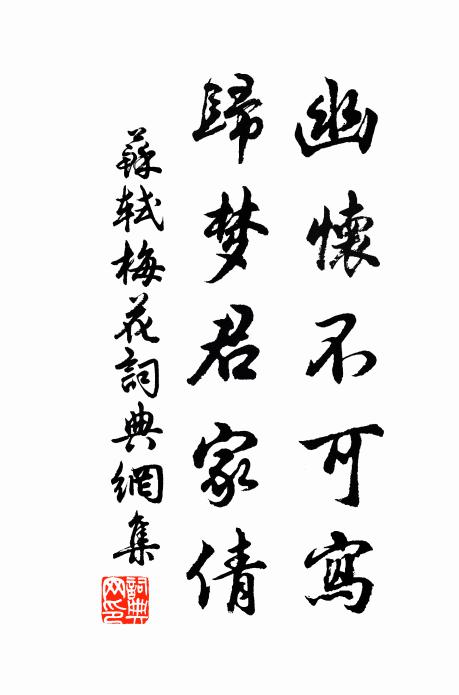 幽懷不可寫
歸梦君家倩
蘇軾梅花詞典網集
詞典網印